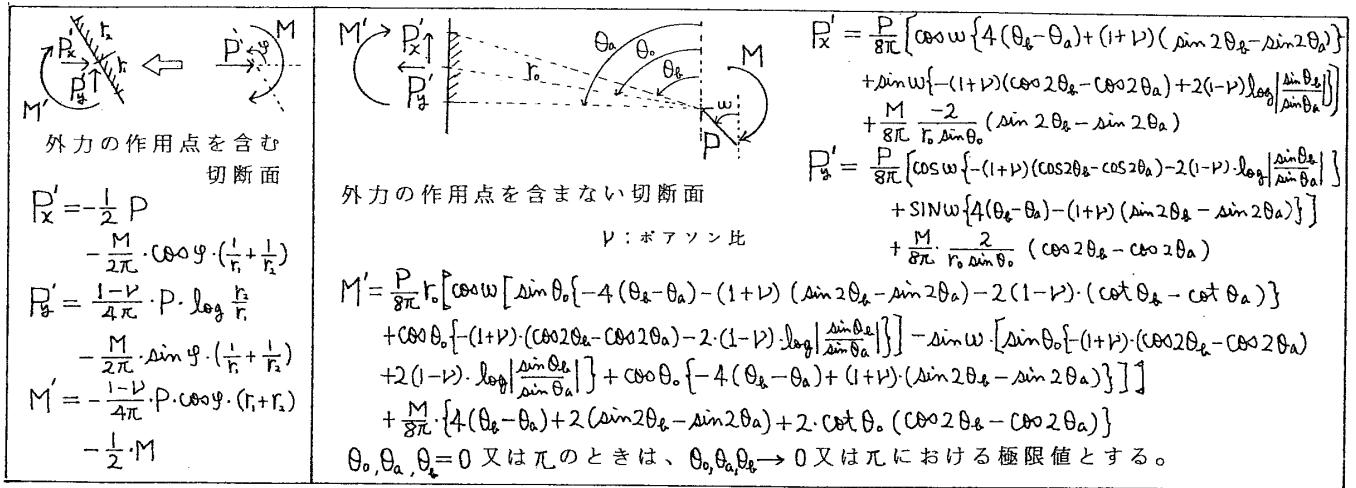 P'x
r₂
P'y
r₁
M'
P
φ
M
外力の作用点を含む
切断面
P'x = -1/2 P
- M/2π · cos φ · (1/r₁ + 1/r₂)
P'y = (1-ν)/4π · P · log r₂/r₁
- M/2π · sin φ · (1/r₁ + 1/r₂)
M' = -(1-ν)/4π · P · cos φ · (r₁ + r₂)
- 1/2 · M
M'
P'x
P'y
r₀
θa
θ₀
θb
M
ω
P
外力の作用点を含まない切断面
ν：ポアソン比
P'x = P/8π [cos ω {4(θb-θa) + (1+ν)(sin 2θb - sin 2θa)}
+ sin ω {-(1+ν)(cos 2θb - cos 2θa) + 2(1-ν) log|sin θb/sin θa|}]
+ M/8π -2/(r₀ sin θ₀) (sin 2θb - sin 2θa)
P'y = P/8π [cos ω {-(1+ν)(cos 2θb - cos 2θa) - 2(1-ν) · log|sin θb/sin θa|}
+ SIN ω {4(θb-θa) - (1+ν)(sin 2θb - sin 2θa)}]
+ M/8π · 2/(r₀ sin θ₀) (cos 2θb - cos 2θa)
M' = P/8π r₀ [cos ω [sin θ₀ {-4(θb-θa) - (1+ν)(sin 2θb - sin 2θa) - 2(1-ν) · (cot θb - cot θa)}
+ cos θ₀ {-(1+ν) · (cos 2θb - cos 2θa) - 2 · (1-ν) · log|sin θb/sin θa|}] - sin ω · [sin θ₀ {-(1+ν) · (cos 2θb - cos 2θa)
+ 2(1-ν) · log|sin θb/sin θa|} + cos θ₀ {-4(θb-θa) + (1+ν) · (sin 2θb - sin 2θa)}]]
+ M/8π · {4(θb-θa) + 2(sin 2θb - sin 2θa) + 2 · cot θ₀ (cos 2θb - cos 2θa)}
θ₀, θa, θb = 0 又はπのときは、θ₀, θa, θb → 0 又はπにおける極限値とする。